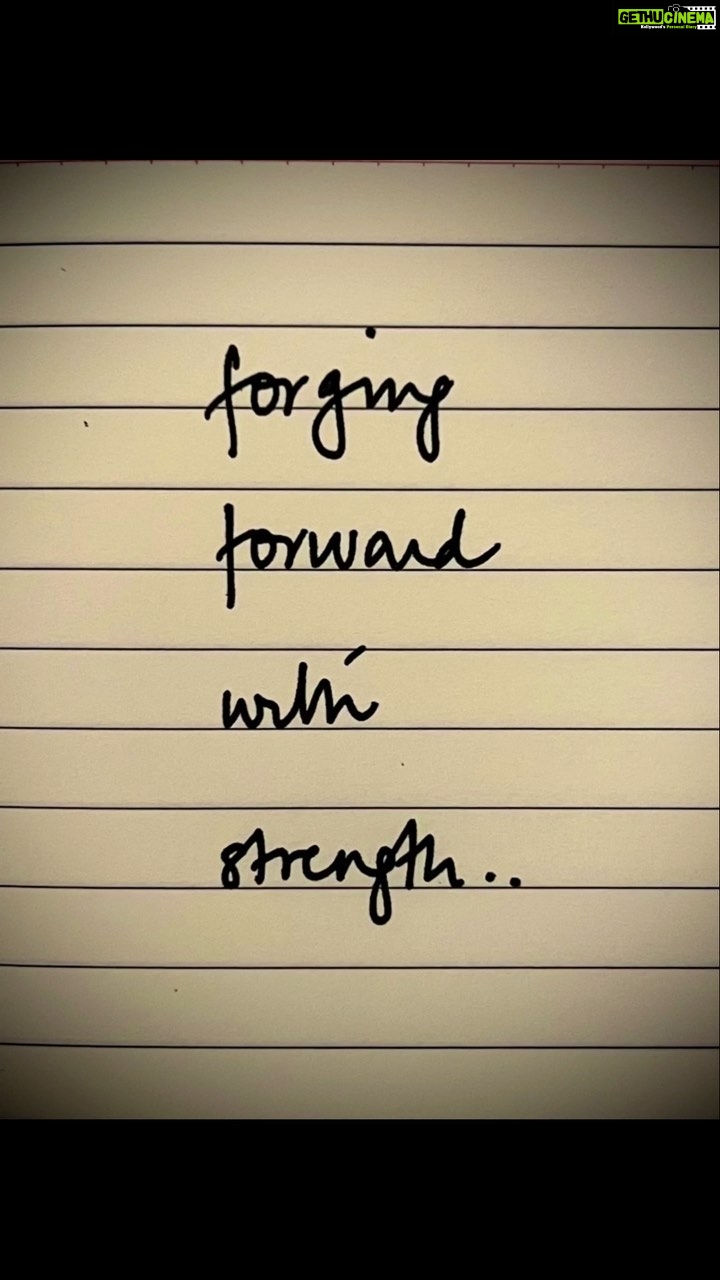 GETHUCINEMA
Kollywood's Personal Diary
forging
forward
with
strength..